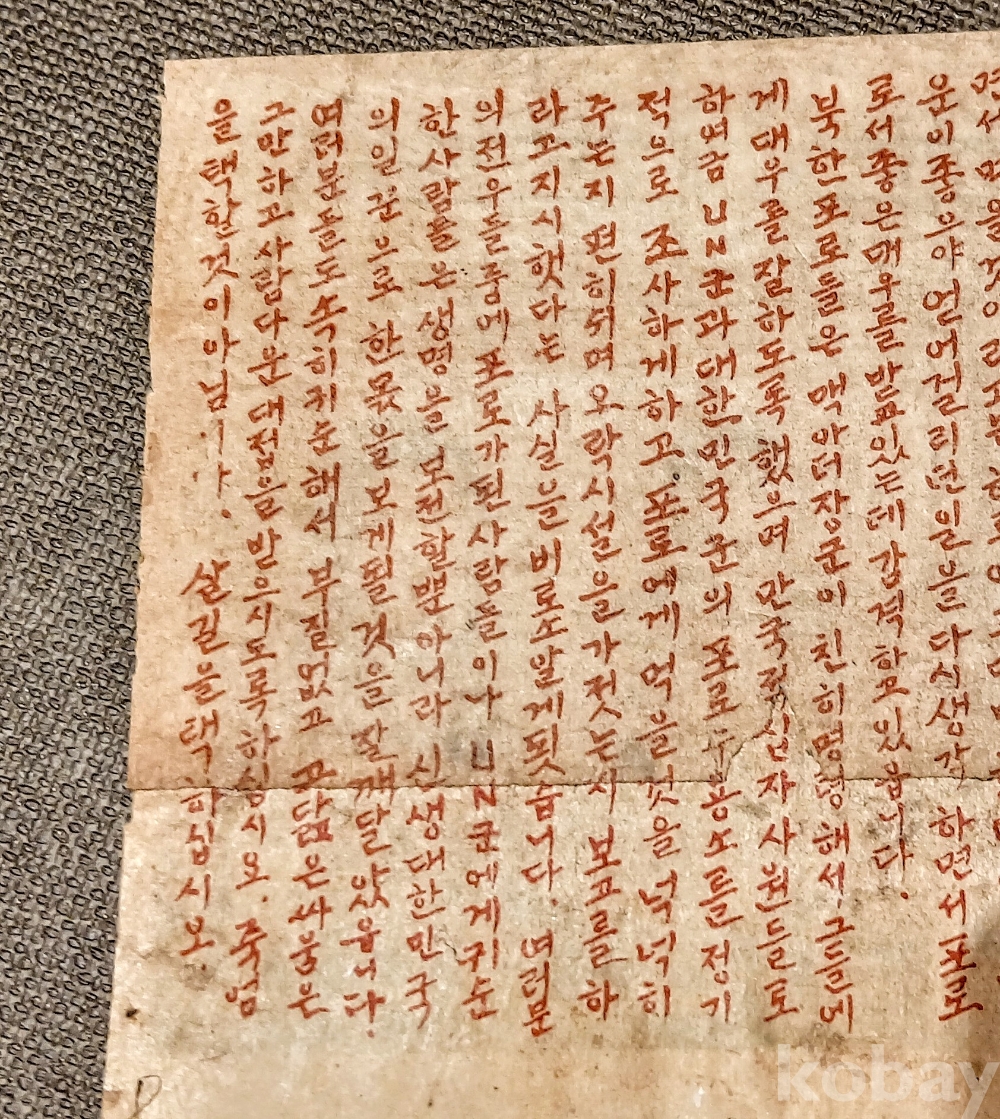 운이좋으야 얻어걸리던일을 다시생각 하면서 포로
로서좋은대우를받고있는데 감격하고있읍니다.
북한포로들은 맥아더장군이 친히명령해서 그들에
게 대우를잘하도록 했으며 만국적십자사원들로
하여금 UN군과대한민국군의 포로수용소를정기
적으로 조사하게하고 포로에게 먹을것을 넉넉히
주는지 편히쉬며 오락시설을가젓는지 보고를하
라고지시햇다는 사실을비로소알게됫습니다. 여러분
의전우들중에 포로가된사람들이나 UN군에게귀순
한사람들은생명을보전할뿐아니라 신생대한민국
의일군으로 한몫을보게될 것을 잘깨달았읍니다.
여러분들도속히귀순해서 부질없고 끝없은싸움은
그만하고사람다운대접을받으시도록하십시오. 죽엄
을택할것이아닙니다. 살길을택하십시오
kobay